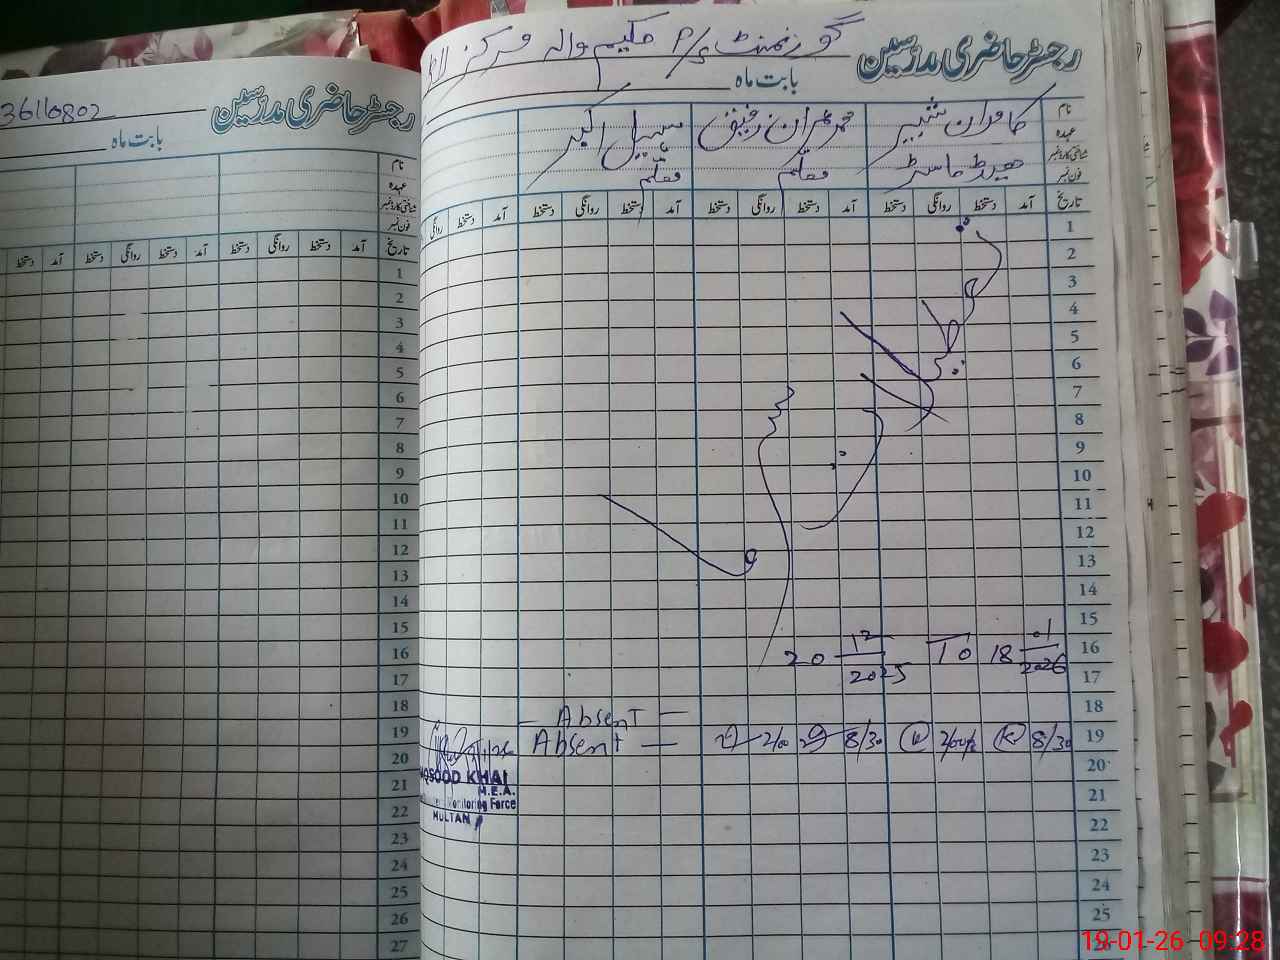 36110802
رجسٹر حاضری مدرسین
بابت ماہ
نام
عہدہ
شناختی کارڈ نمبر
فون نمبر
تاریخ آمد دستخط روانگی دستخط آمد دستخط روانگی دستخط آمد دستخط
1
2
3
4
5
6
7
8
9
10
11
12
13
14
15
16
17
18
19
20
21
22
23
24
25
26
27
رجسٹر حاضری مدرسین گورنمنٹ P/S حکیم والہ مرکز
بابت ماہ
نام کامران شبیر محمد عمران رفیق سہیل اکبر
عہدہ ہیڈ ماسٹر معلم معلم
شناختی کارڈ نمبر
فون نمبر
تاریخ آمد دستخط روانگی دستخط آمد دستخط روانگی دستخط آمد دستخط روانگی دستخط آمد دستخط روانگی
1
2
3
4
5
6
7
8
9
10
11
12
13
14
15
16
20 12/2025 To 18 01/2026
17
18
— Absent —
19 8/30 8/30 Absent —
20
21
22
23
24
25
MAQSOOD KHAN
M.E.A.
Monitoring Force
MULTAN
19-01-26 09:28